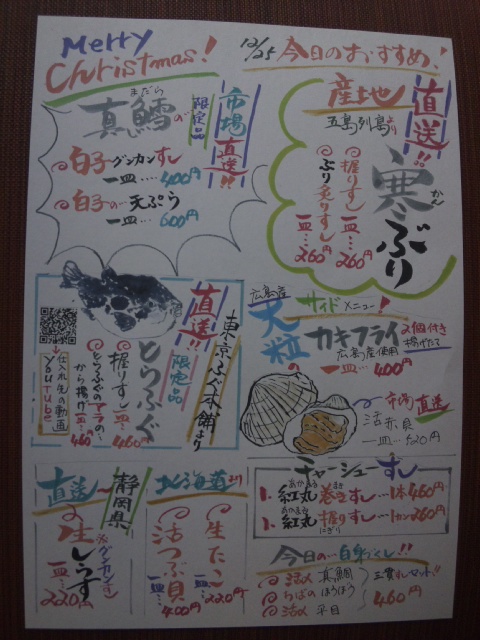 Merry
Christmas!
12/25 今日のおすすめ!
市場直送!!
限定品
まだら
真鱈の
白子グンカンすし
一皿…400円
白子の…天ぷら
一皿…600円
産地直送!!
五島列島より
寒ぶり
かん
握りすし 一皿…260円
ぶり炙りすし 一皿…260円
東京ふぐ本舗より
直送!!
限定品
とらふぐ
握りすし 一皿…460円
とらふぐのアラの
から揚げ 一皿…460円
仕入れ先の動画
YouTube
サイドメニュー!
広島産
大粒の
カキフライ
2個付き
揚げたて
広島産使用
一皿…400円
市場直送
活赤貝
一皿…520円
直送
静岡県
生しらす
グンカンすし
一皿…220円
北海道より
生たこ
一皿…220円
活つぶ貝
一皿…400円
チャーシューすし
紅丸巻きすし…1本460円
紅丸握りすし…1カン260円
にぎり
今日の…白身づくし!!
活〆 真鯛
ちばの ほうぼう
活〆 平目
三貫セット!!
460円